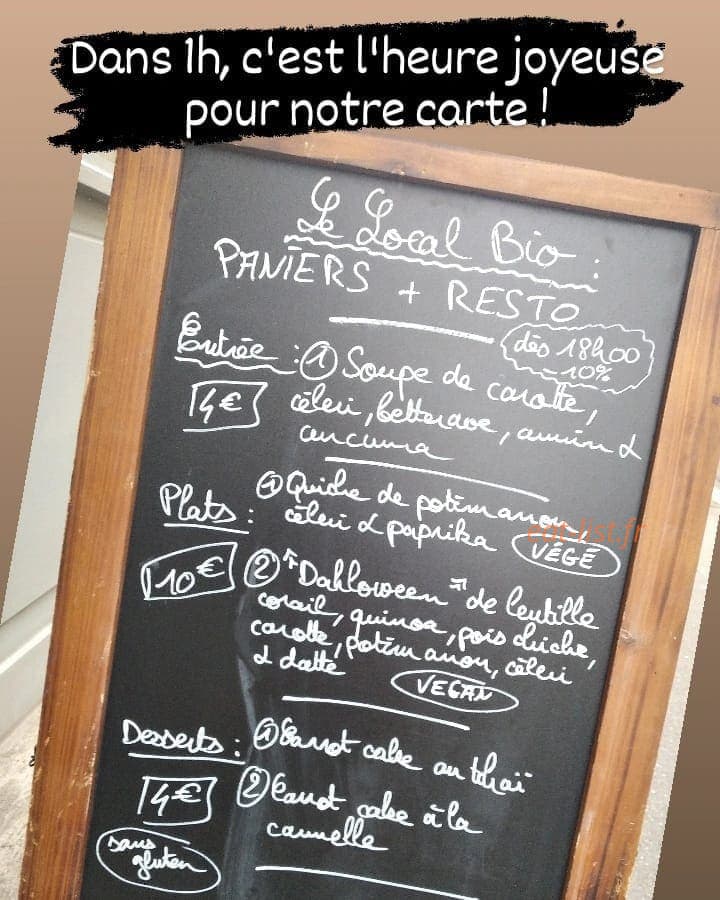 Dans 1h, c'est l'heure joyeuse
pour notre carte !
Le Local Bio :
PANIERS + RESTO
dès 18h00
-10%
Entrée : ① Soupe de carotte,
4€
céleri, betterave, cumin &
curcuma
Plats :
① Quiche de potimarron,
céleri & paprika
VÉGÉ
eat-list.fr
10€
② "Dahloween" de lentille
corail, quinoa, pois chiche,
carotte, potimarron, céleri
& datte
VEGAN
Desserts : ① Carrot cake au chaï
4€
② Carrot cake à la
cannelle
sans
gluten